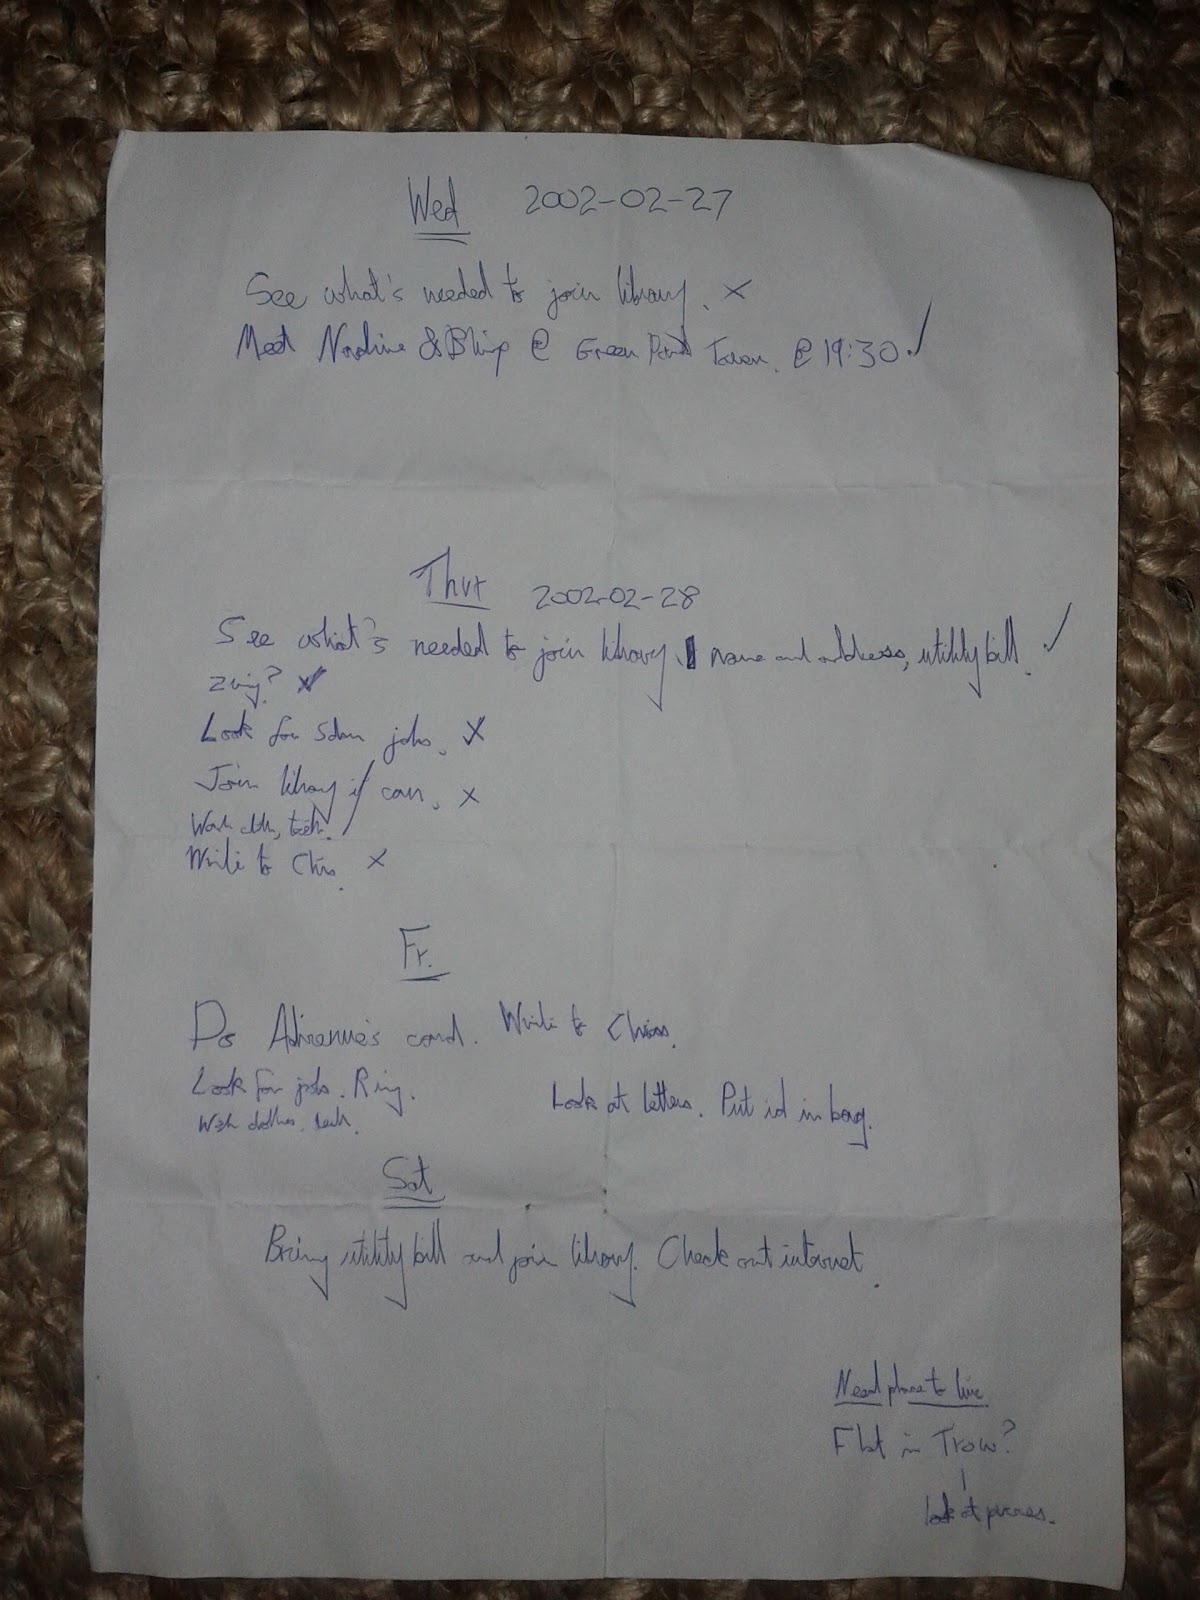 Wed 2002-02-27
See what's needed to join library. ×
Meet Nadine & Blimp @ Green Tavern. @ 19:30. ✓
Thur 2002-02-28
See what's needed to join library. name and address, utility bill. ✓
?
Look for jobs. ×
Join library if can. ×
Wash ✓
Write to Chris. ×
Fr.
Do Adrienne's card. Write to Chris.
Look for jobs. Ring.
Look at letters. Put id in bag.
Wash clothes.
Sat
Bring utility bill and join library. Check out internet.
Need place to live
Flat in Trow?
look at